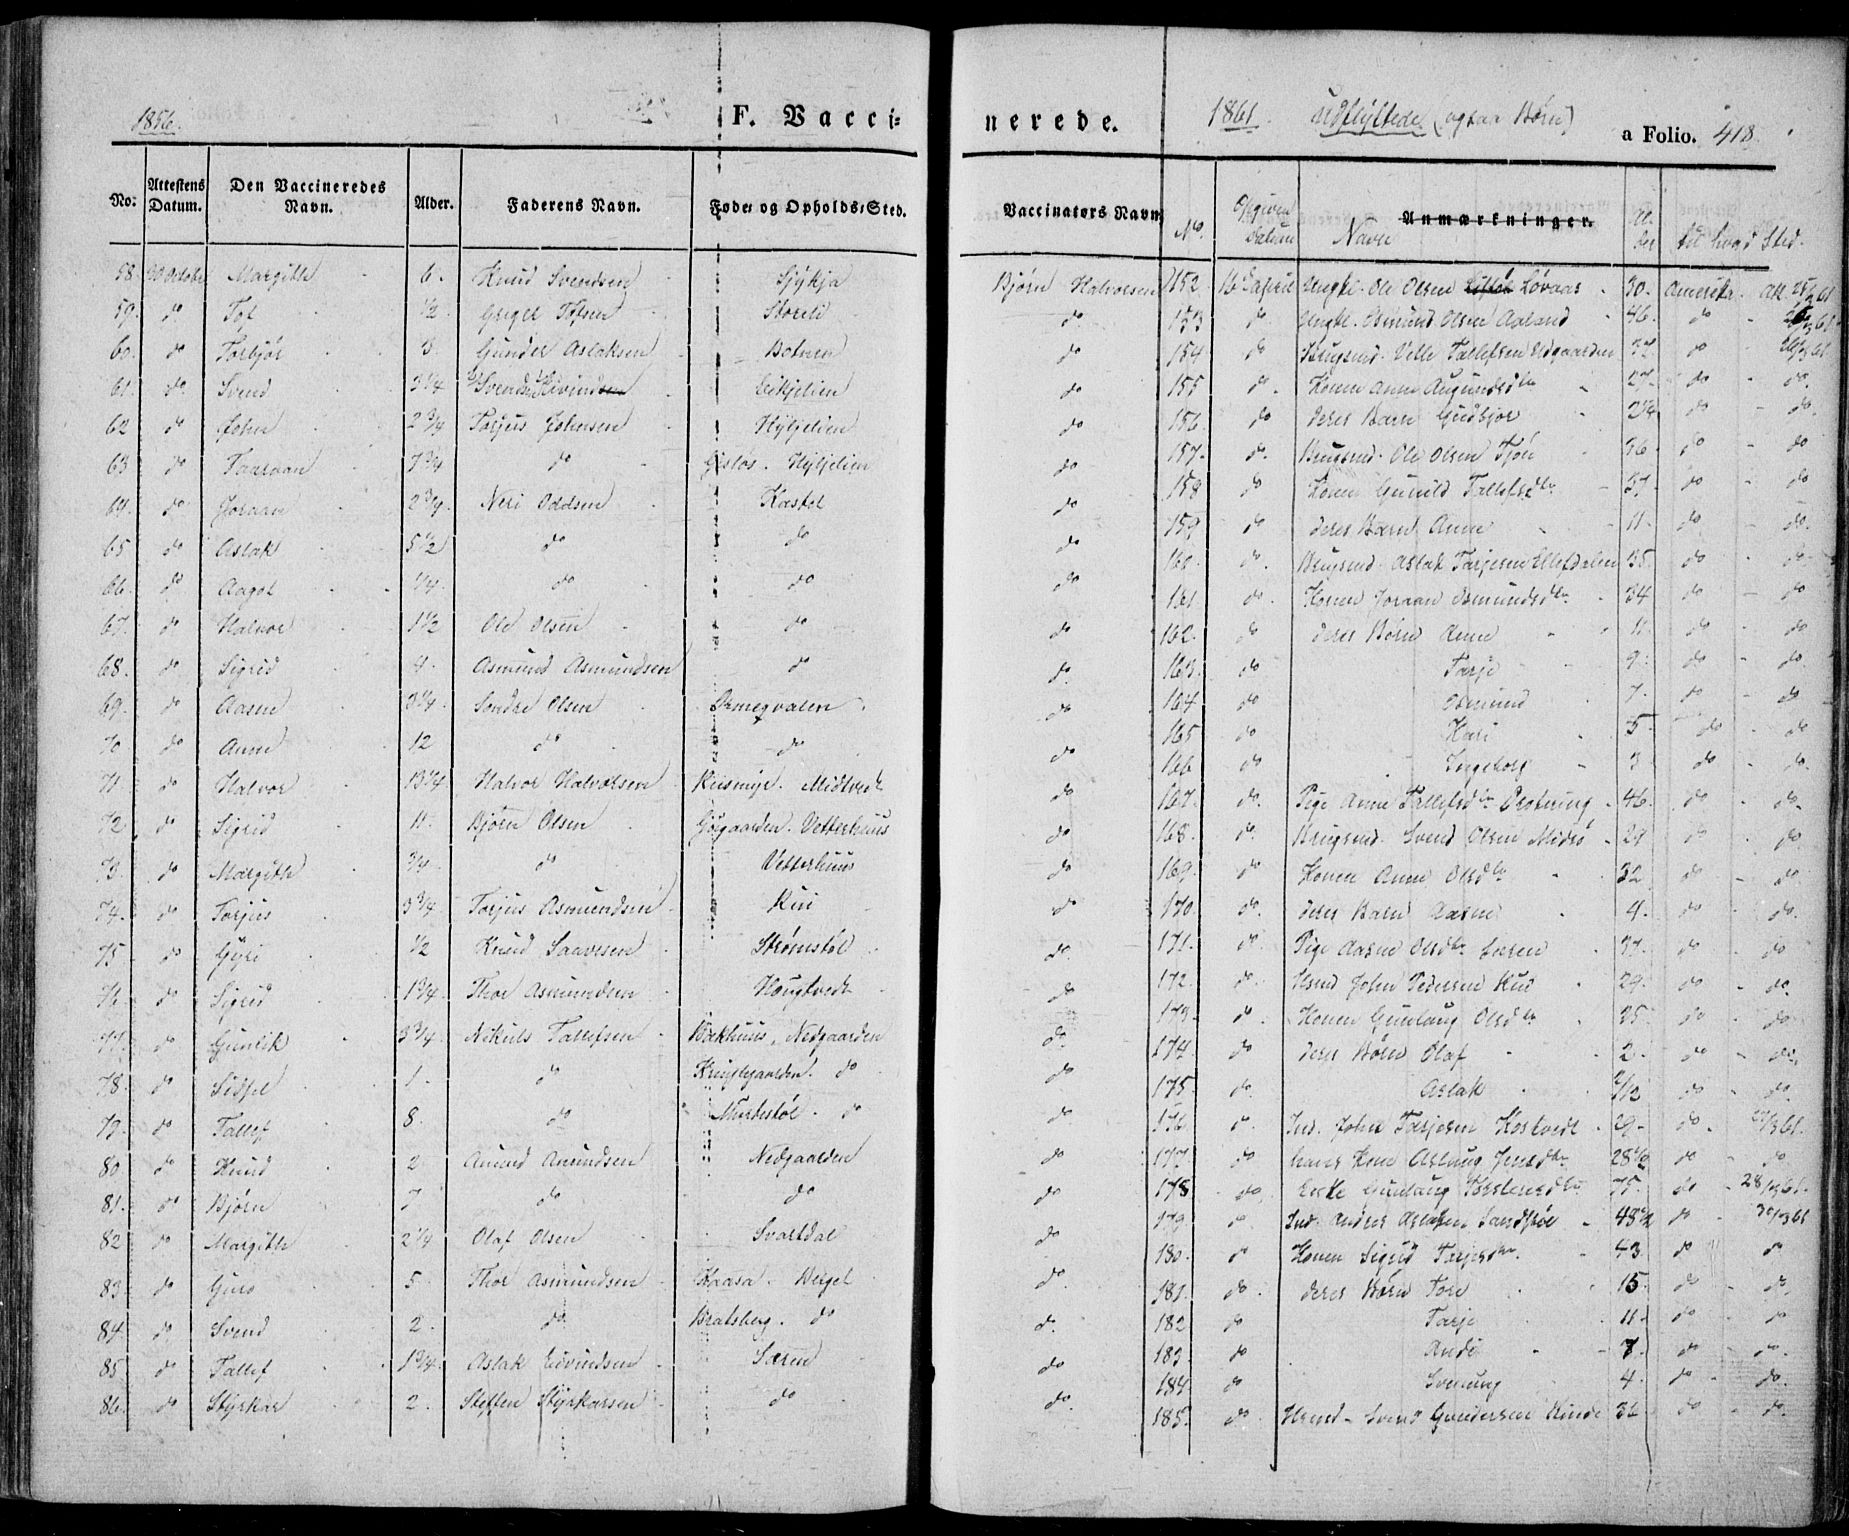 1856.
F. Vacci-
nerede.
1861. udflyttede (ogsaa Børn)
a Folio. 418.
No. Attestens Datum. Den Vaccineredes Navn. Alder. Faderens Navn. Føde- og Opholds-Sted.
Vaccinators Navn No. Datum Navn Anmærkninger. Al-der til hvad Sted.
58. 30 October Margith 6. Knud Svendsen
59. do Tof 1/2 Greger Tofsen Storeli
60. do Torbjør 8. Gunder Aslaksen Botnen
61. do Svend 3 1/4 Svend Eivindsen Eikjelien
62 do John 2 3/4 Torjus Johnsen Hyljelien
63 do Taaraan 7 3/4 do Gisløs. Hyljelien
64. do Joraan 2 3/4 Neri Oddsen Kastet
65 do Aslak 5 1/2 do do
66. do Aagot 1/4. do do
67. do Halvor 1 1/2 Ole Olsen do
68. do Sigrid 4. Asmund Asmundsen do
69. do Aasne 3 1/4. Sondre Olsen
70 do Anne 12 do do
71 do Halvor 13 1/4. Halvor Halvorsen Kiismyr. Midtvedt
72. do Sigrid 11. Bjørn Olsen Gørgaarden. Vetterhuus
73. do Margith 3/4. do Vetterhuus
74. do Torjus 3 3/4. Torjus Asmundsen Rui
75 do Gyri 1/2 Knud Saavesen Strømstøl
76. do Sigrid 1 3/4. Thor Asmundsen Haugtvedt
77. do Gunlik 3 3/4. Nikuls Tallefsen Bakhuus, Nedgaarden
78. do Sidsel 1. do Kringlegaarden. do
79. do Tallef 8. do do
80 do Knud 2. Amund Amundsen Nedgaarden
81. do Bjørn 7 do do
82 do Margith 2 1/4 Olaf Olsen Svartdal
83. do Guro 5. Thor Asmundsen Haasa. Bergel
84. do Svend 2. do Bratsberg. do
85. do Tallef 1 3/4. Aslak Eivindsen Saren
86. do Styrkar 2. Steffen Styrkarsen do
Bjørn Halvorsen 152. 16 April Ungkl. Ole Olsen Løvaas 30. Amerika. Att.
do 153 do Ungk. Osmund Olsen Aaland 46. do
do 154 do Brugsmd. Velle Tallefsen Udgaarden 32 do
do 155 do. Konen Anne Augunds dtr 27. do do.
do 156. do deres Barn Gudbjør 2 1/4 do do.
do 157. do. Brugsmd. Ole Olsen Tjøn 36. do do
do 158 do Konen Gunild Tallefsdtr 37. do do
do 159. do. deres Barn Anne 11. do do.
do 160. do. Brugsmd. Aslak Tarjesen Ellefdalen 35. do do
161 do. Konen Joraan Osmundsdtr 34 do do
do 162. do deres Børn Anne 11. do do
do. 163. do Tarje 9. do do
do 164 do Osmund 7. do do
165 do Kari 5 do do
do 166 do Ingeborg 3 do do.
do 167. do. Pige Anne Tallefsdtr 46. do do.
do 168. do. Brugsmd. Svend Olsen Midsø 29 do do.
do 169. do Konen Anne Olsdtr 32 do do.
do 170. do. deres Barn Aasne 4. do do.
do. 171. do Pige Aasne Olsdtr 37. do do.
do 172. do. John Pedersen Rui 29. do do.
do. 173. do Konen Gunlaug Olsdtr 35 do do
174. do deres Børn Olaf 2. do do.
do 175. do. Aslak do do.
do 176. do. Ind. John Tarjesen Kostvedt 29. do. 27/3 61.
do 177 do. hans Kone Aslaug 28 do do
do 178 do. Enke Gunlaug Torstensdtr 75. do 28/3 61.
do 179. do Ind. Andres Aslaksen Sandstøl 48 1/2 do 30/3 61
180. do Konen Sigrid Tarjesdtr 43. do do
do. 181. do. deres Børn Tore 15. do do.
do. 182 do Tarje 11. do do
do 183. do Ande 7. do do.
184. do Svenung 4. do do.
do. 185. do Svend Gundersen 32 do do.